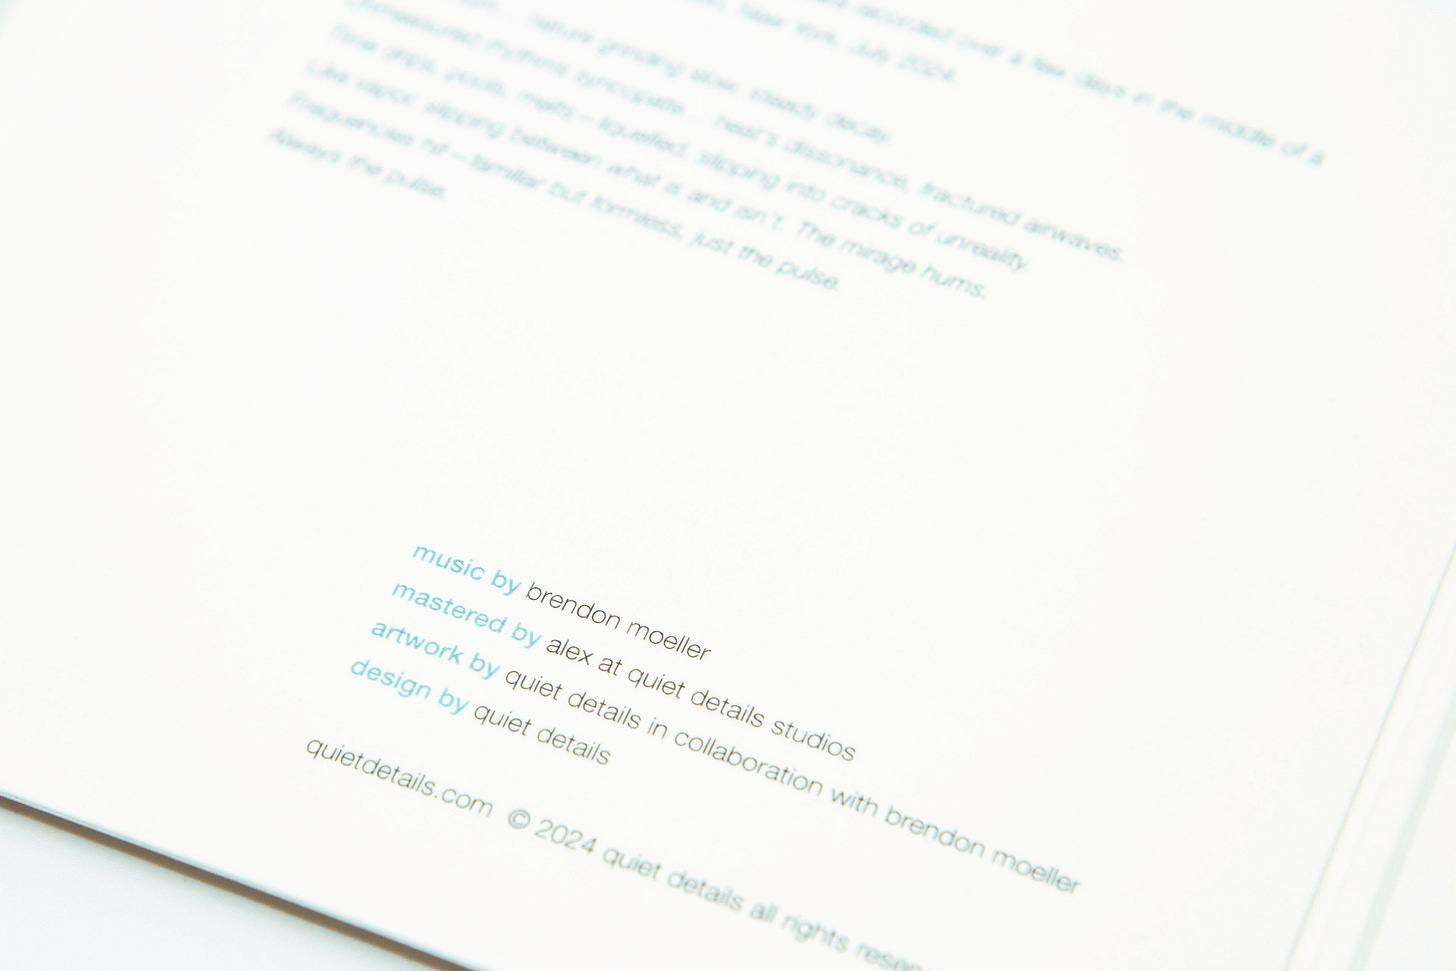 recorded over a few days in the middle of a
New York, July 2024.
nature grinding slow, steady decay.
rhythms syncopate... heat's dissonance, fractured airwaves.
Time drips, pools, melts – liquefied, slipping into cracks of unreality.
Like vapor, slipping between what is and isn't. The mirage hums.
Frequencies hit – familiar but formless, just the pulse.
Always the pulse.
music by brendon moeller
mastered by alex at quiet details studios
artwork by quiet details in collaboration with brendon moeller
design by quiet details
quietdetails.com © 2024 quiet details all rights reser